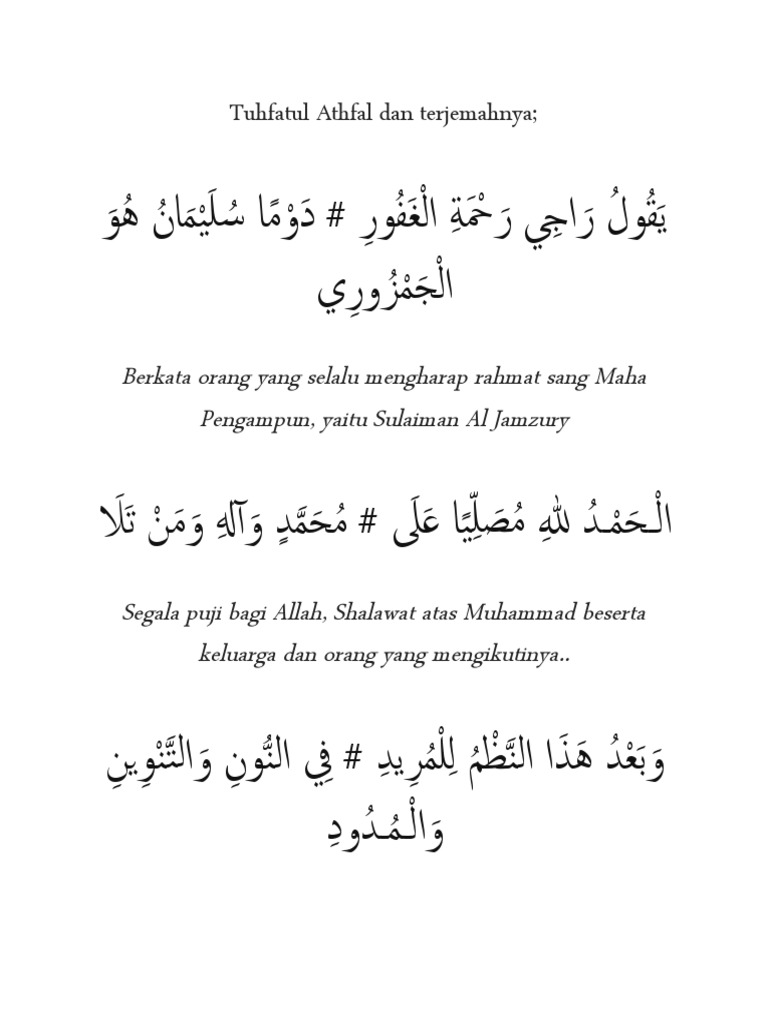 Tuhfatul Athfal dan terjemahnya;
يَقُولُ رَاجِي رَحْمَةِ الْغَفُورِ # دَوْمًا سُلَيْمَانُ هُوَ
الْجَمْزُورِي
Berkata orang yang selalu mengharap rahmat sang Maha
Pengampun, yaitu Sulaiman Al Jamzury
الْـحَمْـدُ لِلهِ مُصَلِّيًا عَلَى # مُحَمَّدٍ وَآلهِ وَمَنْ تَلَا
Segala puji bagi Allah, Shalawat atas Muhammad beserta
keluarga dan orang yang mengikutinya..
وَبَعْدُ هَذَا النَّظْمُ لِلْمُرِيدِ # فِي النُّونِ وَالتَّنْوِينِ
وَالْـمُـدُودِ